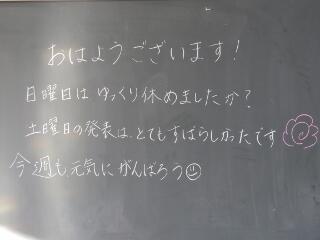 おはようございます!
日曜日は ゆっくり休めましたか?
土曜日の発表は、とてもすばらしかったです
今週も、元気に がんばろう